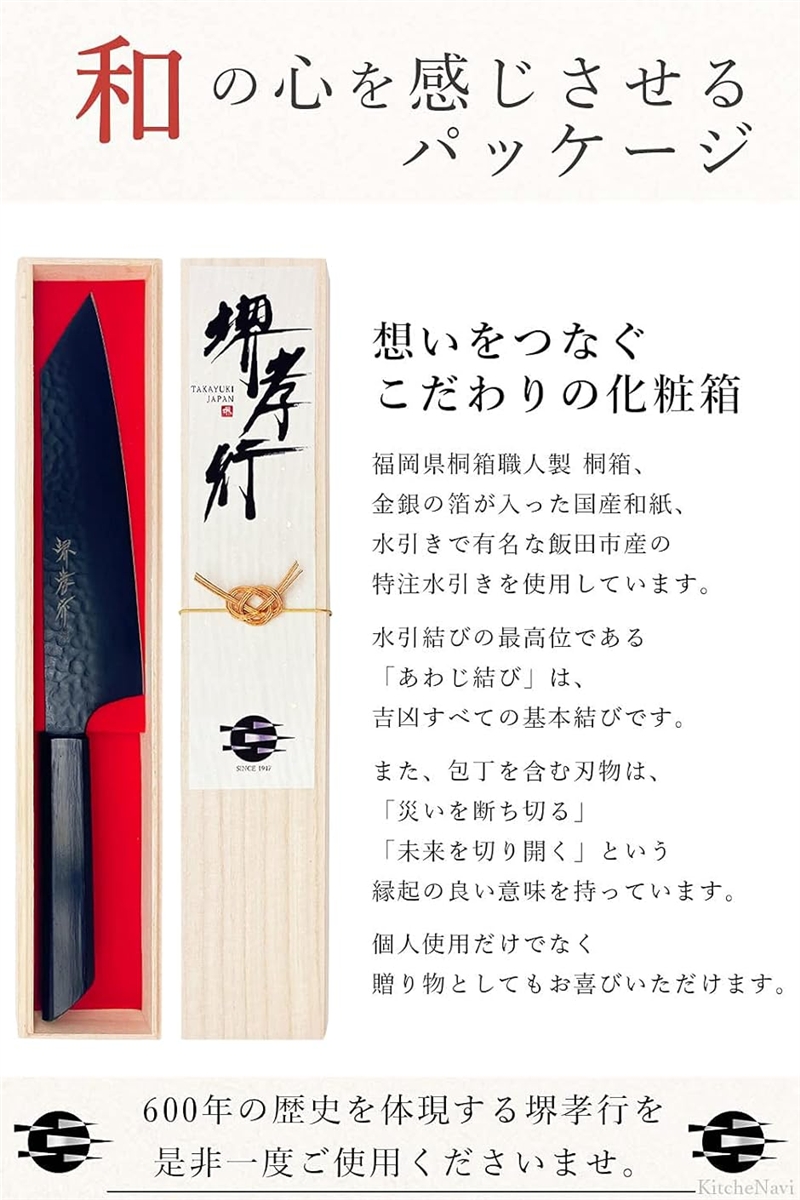 和の心を感じさせる
パッケージ
堺孝行
TAKAYUKI
JAPAN
堺孝行
SINCE 1947
想いをつなぐ
こだわりの化粧箱
福岡県桐箱職人製 桐箱、
金銀の箔が入った国産和紙、
水引きで有名な飯田市産の
特注水引きを使用しています。
水引結びの最高位である
「あわじ結び」は、
吉凶すべての基本結びです。
また、包丁を含む刃物は、
「災いを断ち切る」
「未来を切り開く」という
縁起の良い意味を持っています。
個人使用だけでなく
贈り物としてもお喜びいただけます。
600年の歴史を体現する堺孝行を
是非一度ご使用くださいませ。
KitcheNavi